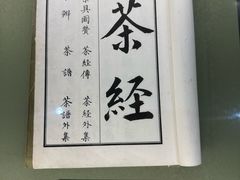 茶經
茶具圖贊 茶經傳 茶經外集
辨 茶譜 茶譜外集